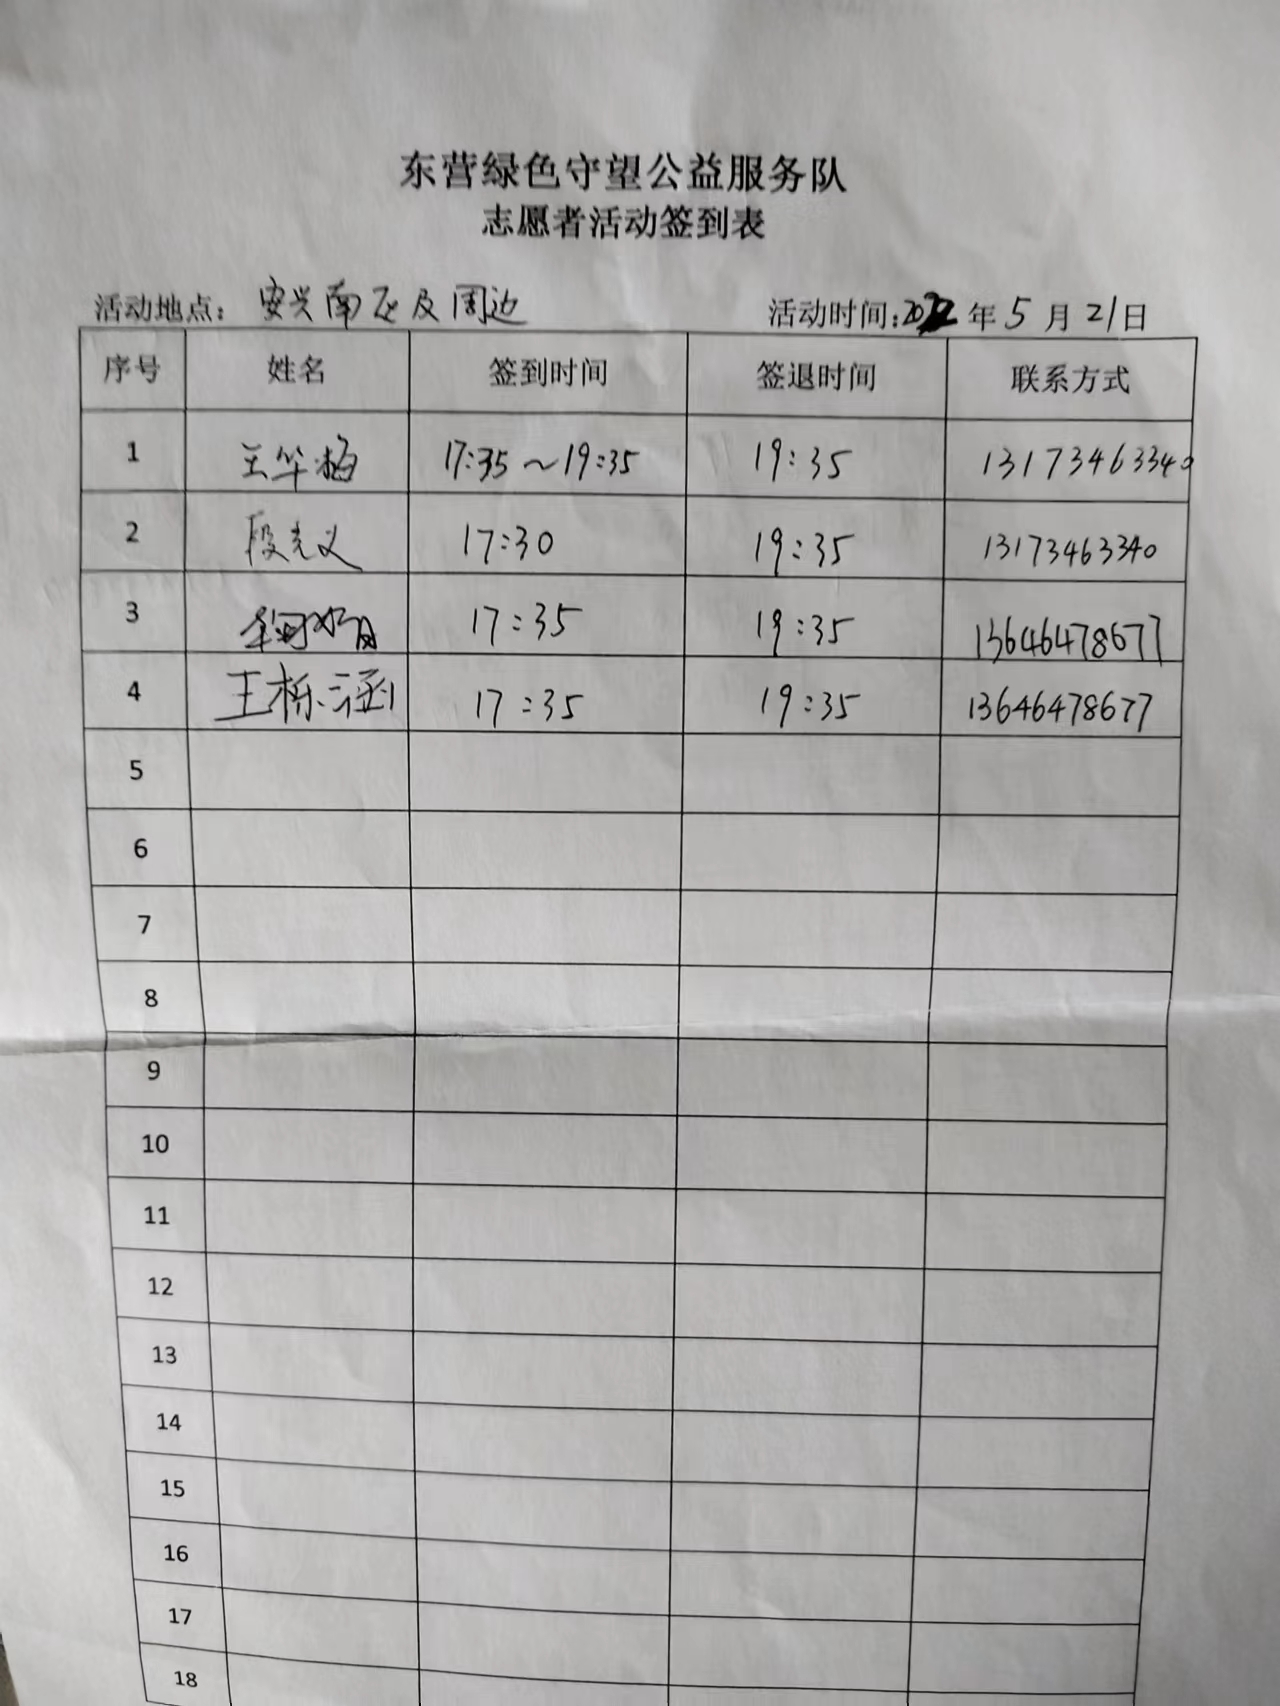 东营绿色守望公益服务队
志愿者活动签到表
活动地点: 安兴南区及周边 活动时间:2022年5月21日
序号 姓名 签到时间 签退时间 联系方式
1 王华梅 17:35~19:35 19:35 13173463340
2 段克义 17:30 19:35 13173463340
3 17:35 19:35 13646478677
4 王栎涵 17:35 19:35 13646478677
5
6
7
8
9
10
11
12
13
14
15
16
17
18